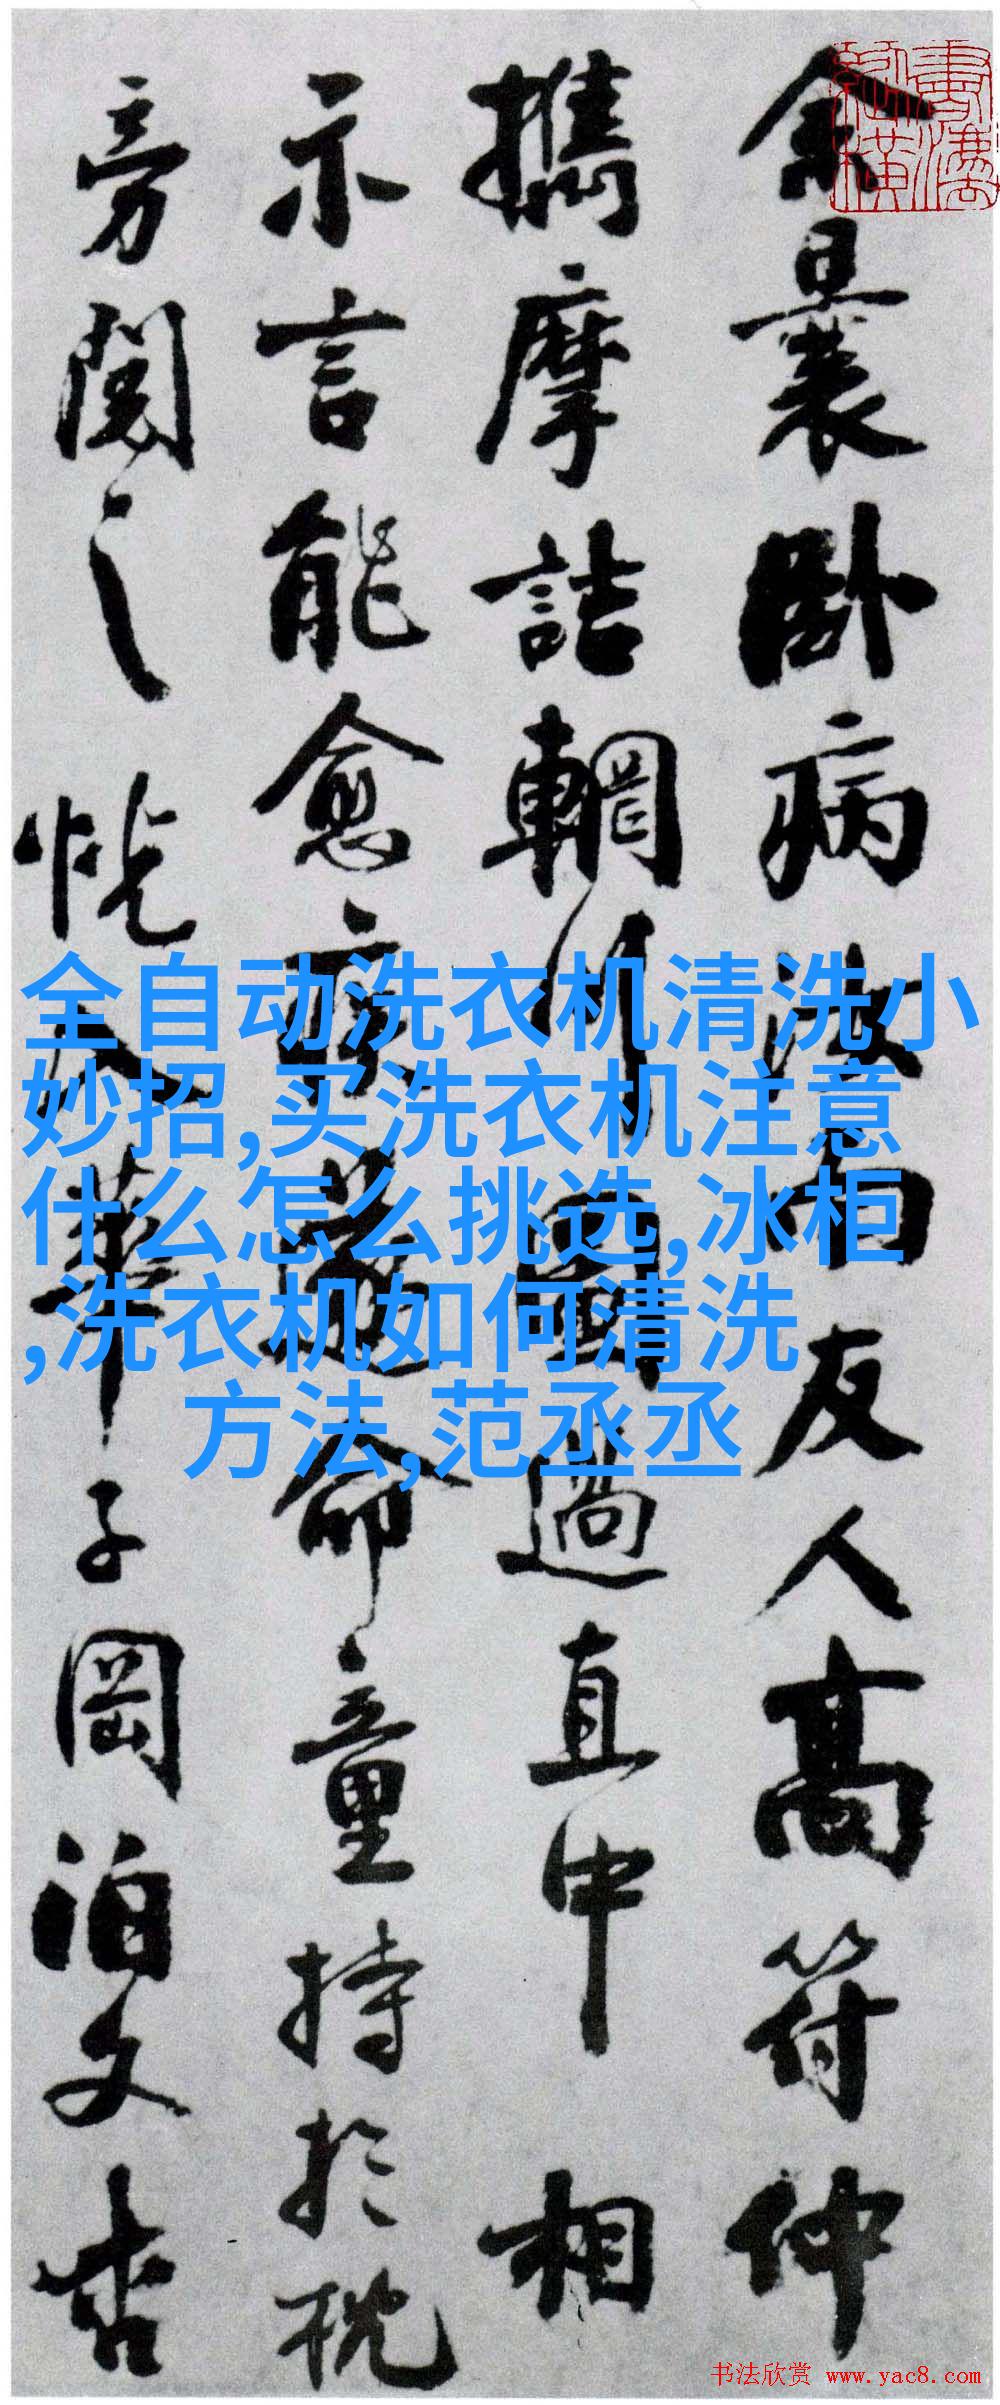 余曩卧病汝南友人高符仲
攜摩詰輞川圖過直中相
示言能愈疾遂命童持於枕
旁閱之恍入華子岡泊文杏
全自动洗衣机清洗小
妙招,买洗衣机注意
什么怎么挑选,冰柜
,洗衣机如何清洗
方法,范丞丞
书法欣赏 www.yac8.com